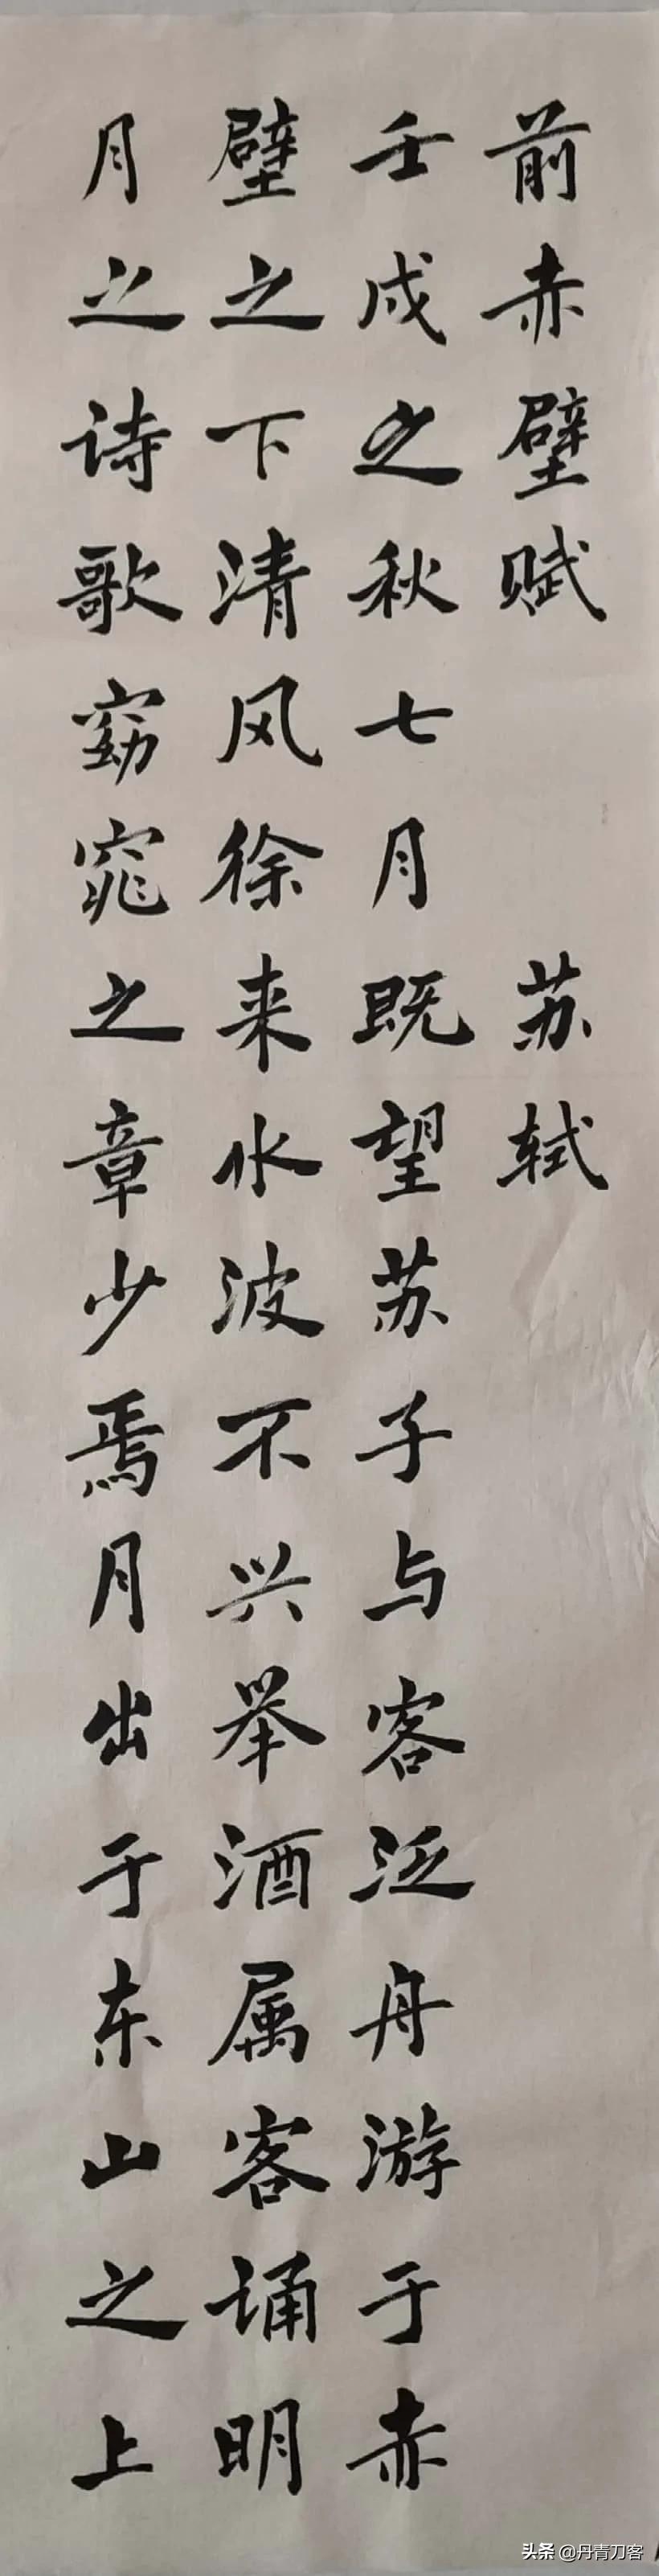 前赤壁赋 苏轼
壬戌之秋七月既望苏子与客泛舟游于赤
壁之下清风徐来水波不兴举酒属客诵明
月之诗歌窈窕之章少焉月出于东山之上
头条 @丹青刀客